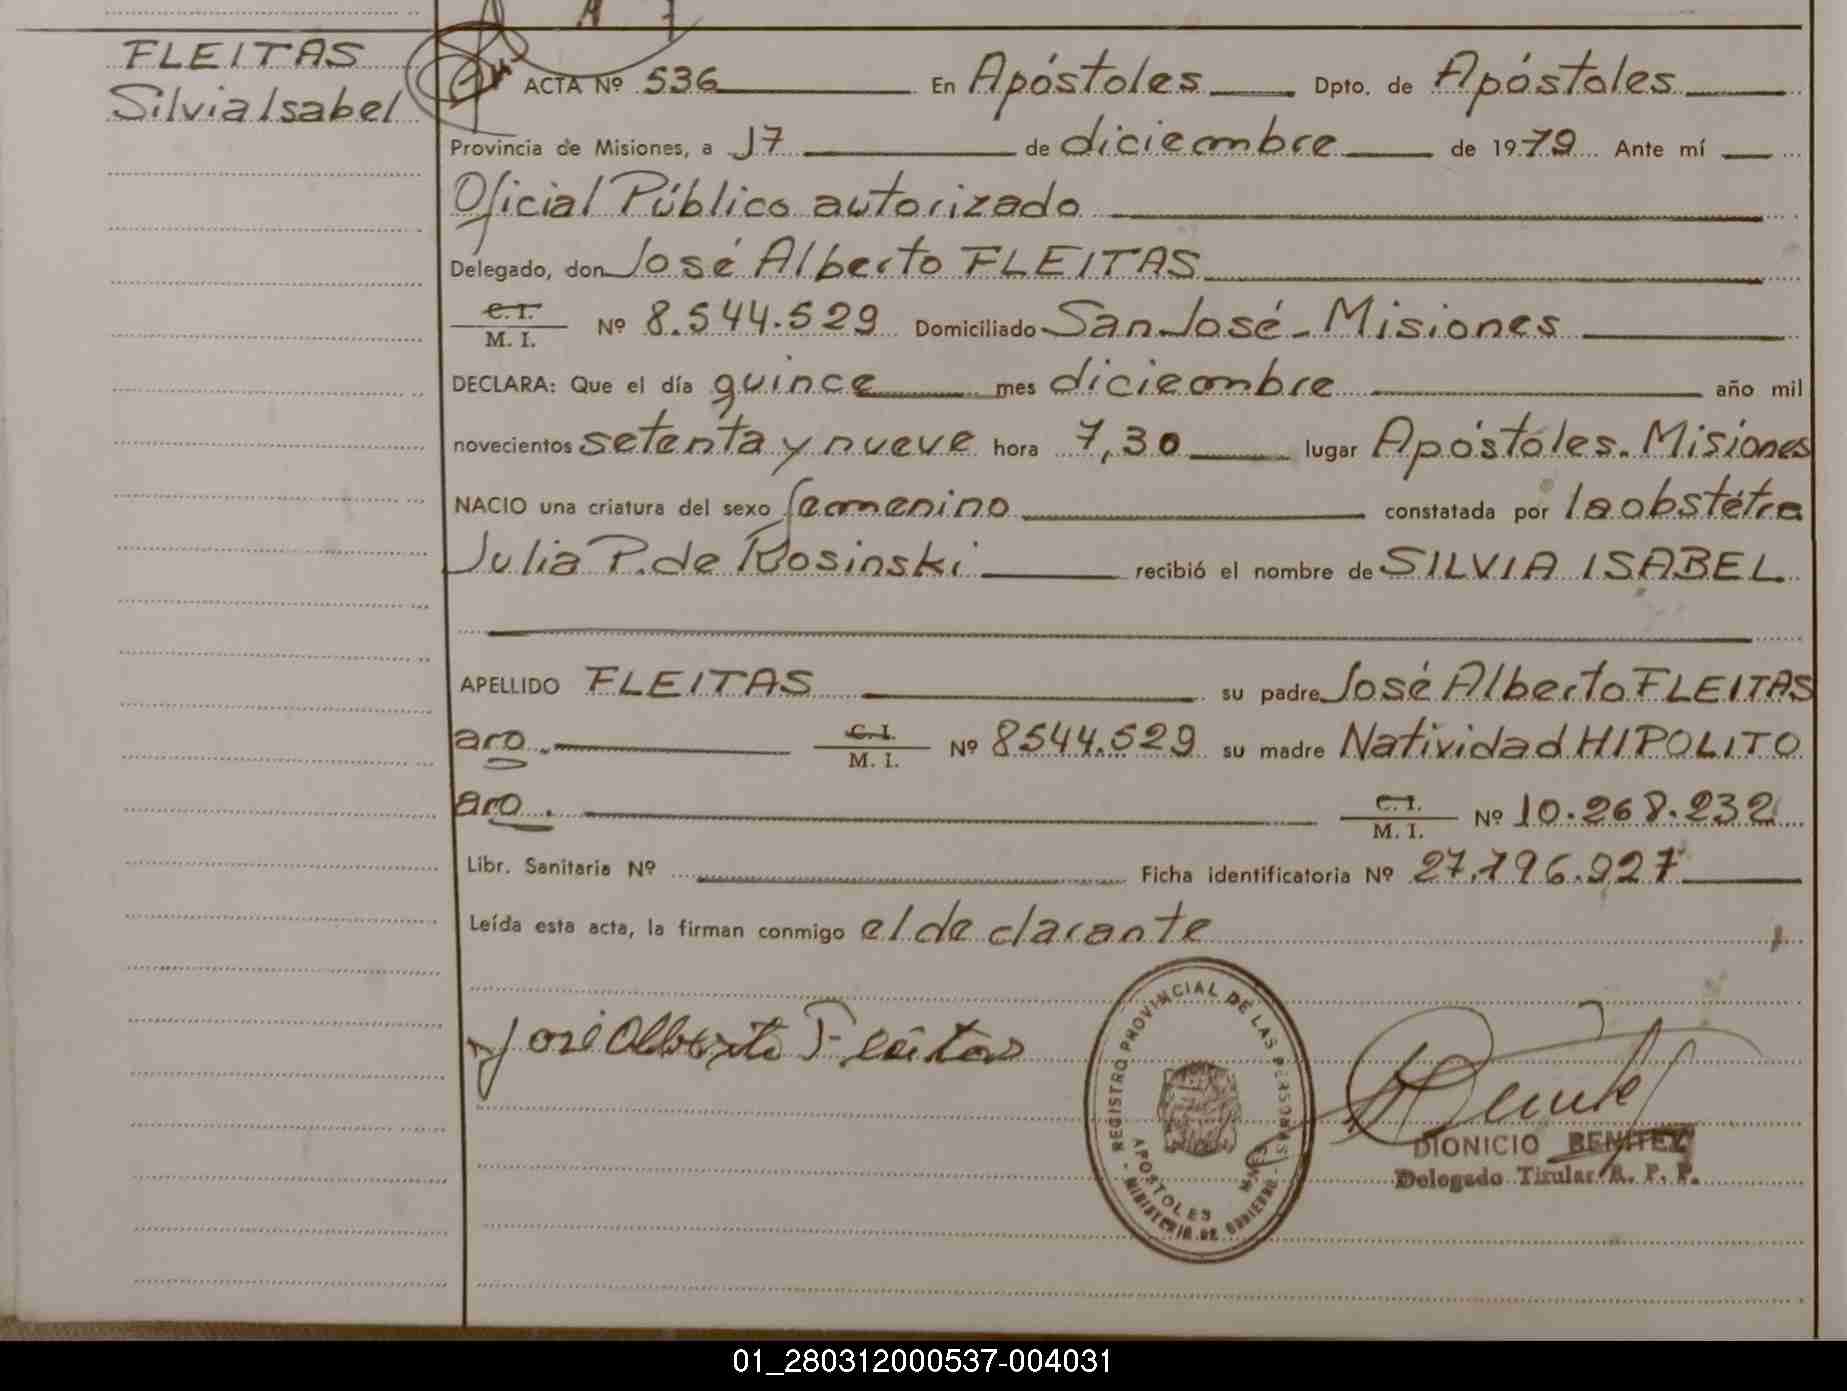 FLEITAS
Silvia Isabel
ACTA Nº 536 En Apóstoles Dpto. de Apóstoles
Provincia de Misiones, a 17 de diciembre de 1979 Ante mí
Oficial Público autorizado
Delegado, don José Alberto FLEITAS
C. I.
M. I. Nº 8.544.529 Domiciliado San José - Misiones
DECLARA: Que el día quince mes diciembre año mil
novecientos setenta y nueve hora 7,30 lugar Apóstoles. Misiones
NACIO una criatura del sexo femenino constatada por la obstétra
Julia P. de Rosinski recibió el nombre de SILVIA ISABEL
APELLIDO FLEITAS su padre José Alberto FLEITAS
aro. C. I.
M. I. Nº 8544.529 su madre Natividad HIPOLITO
aro. C. I.
M. I. Nº 10.268.232
Libr. Sanitaria Nº Ficha identificatoria Nº 27.796.927
Leída esta acta, la firman conmigo el declarante
José Alberto Fleitas
REGISTRO PROVINCIAL DE LAS PERSONAS
APOSTOLES MNES
- MINISTERIO DE GOBIERNO -
DIONICIO BENITEZ
Delegado Titular R. P. P.
01_280312000537-004031